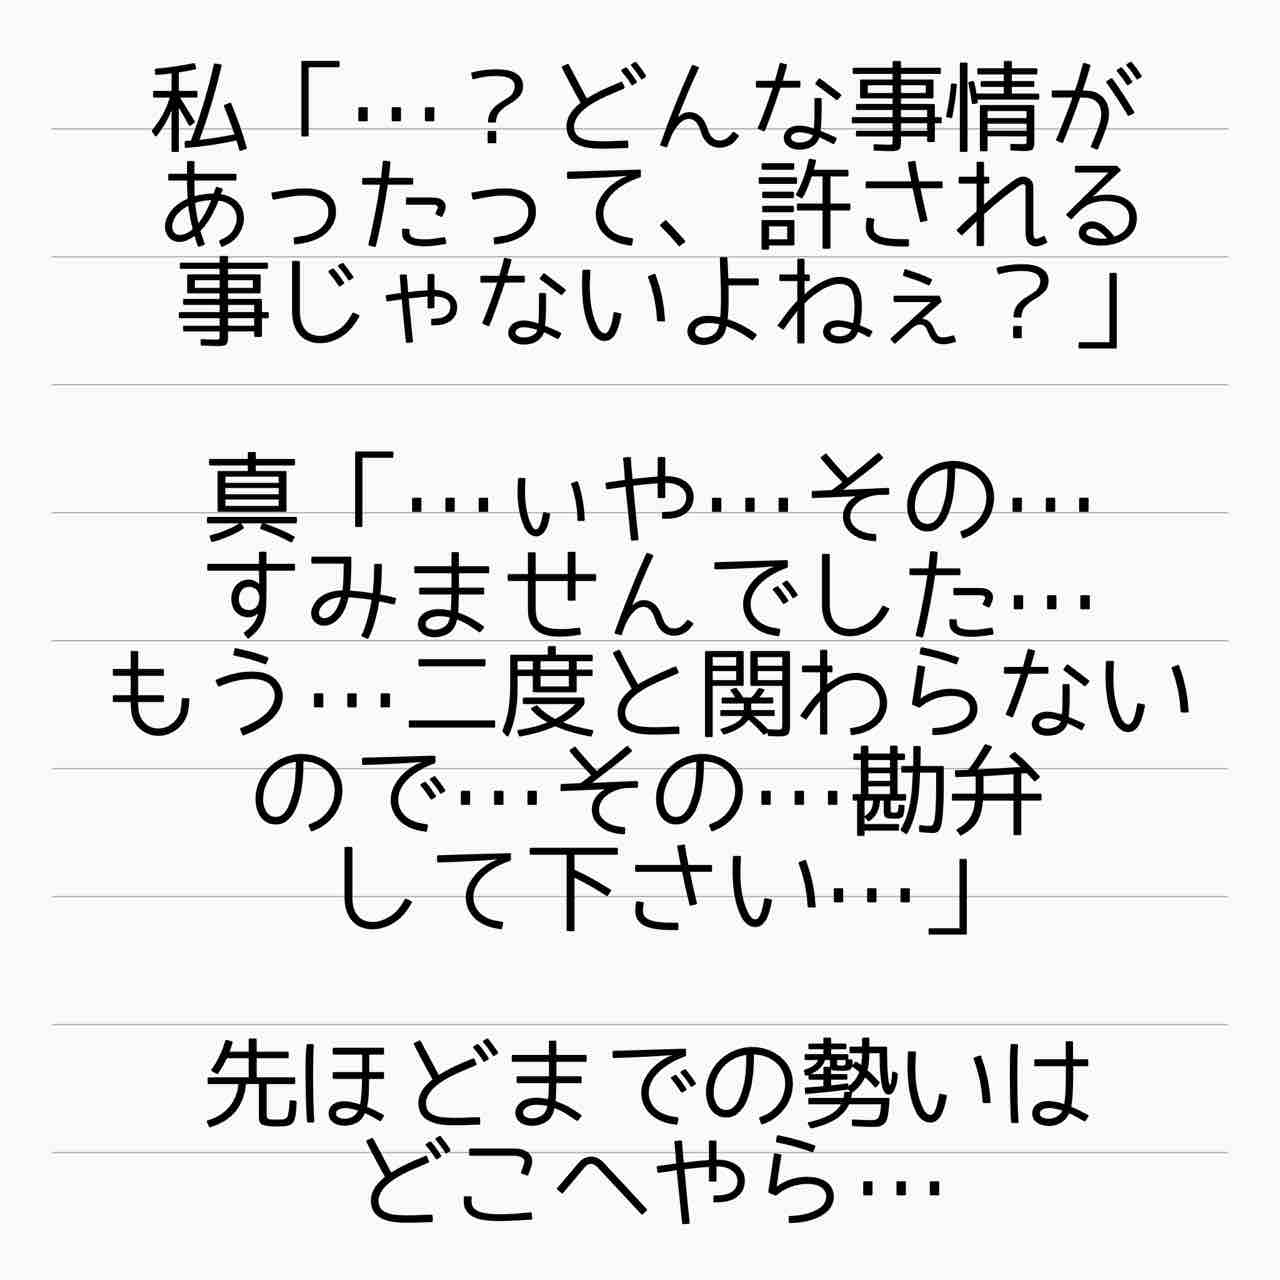 私「…？どんな事情が
あったって、許される
事じゃないよねぇ？」
真「…ぃや…その…
すみませんでした…
もう…二度と関わらない
ので…その…勘弁
して下さい…」
先ほどまでの勢いは
どこへやら…